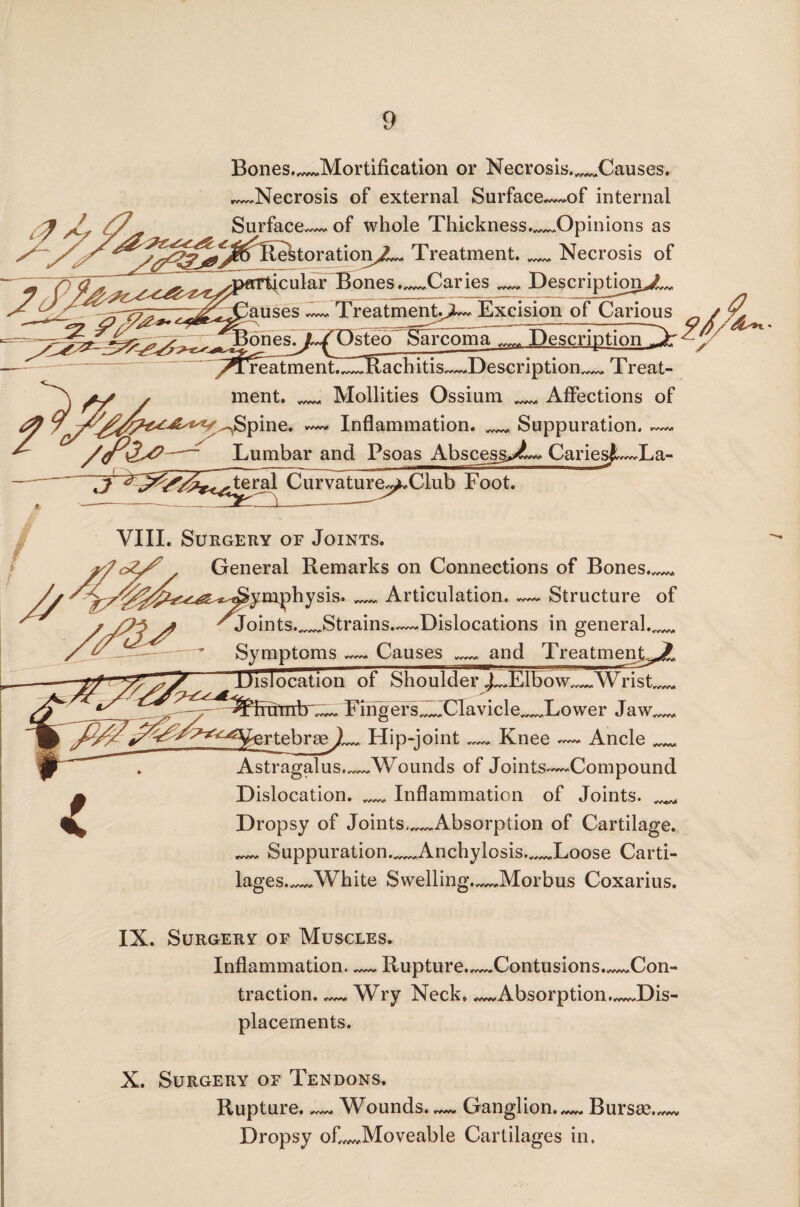 9
Bones.﹏Mortification or Necrosis.﹏Causes.
﹏Necrosis of external Surface﹏of internal
Surface﹏ of whole Thickness.﹏Opinions as
to Restoration﹏ Treatment. ﹏ Necrosis of
particular Bones.﹏Caries ﹏ Description﹏
Causes ﹏ Treatment.﹏ Excision of Carious
Bones.﹏Osteo Sarcoma ﹏ Description ﹏
Treatment.﹏Rachitis﹏Description﹏ Treat-
ment. ﹏ Mollities Ossium ﹏ Affections of
Spine. ﹏ Inflammation. ﹏ Suppuration. ﹏
Lumbar and Psoas Abscess﹏ Caries﹏La-
teral Curvature﹏Club Foot.
VIII. Surgery of Joints.
General Remarks on Connections of Bones.﹏
Symphysis. ﹏ Articulation. ﹏ Structure of
Joints.﹏Strains.﹏Dislocations in general.﹏
Symptoms ﹏ Causes ﹏ and Treatment﹏
Dislocation of Shoulder﹏Elbow﹏Wrist﹏
Thumb﹏ Fingers﹏Clavicle﹏Lower Jaw﹏
Vertebræ﹏ Hip-joint ﹏ Knee ﹏ Ancle ﹏
Astragalus.﹏Wounds of Joints﹏Compound
Dislocation. ﹏ Inflammation of Joints. ﹏
Dropsy of Joints.﹏Absorption of Cartilage.
﹏ Suppuration.﹏Anchylosis.﹏Loose Carti-
lages.﹏White Swelling.﹏Morbus Coxarius.
IX. Surgery of Muscles.
Inflammation. ﹏ Rupture.﹏Contusions.﹏Con-
traction. ﹏ Wry Neck. ﹏Absorption.﹏Dis-
placements.
X. Surgery of Tendons.
Rupture. ﹏ Wounds. ﹏ Ganglion. ﹏ Bursæ.﹏
Dropsy of﹏Moveable Cartilages in.